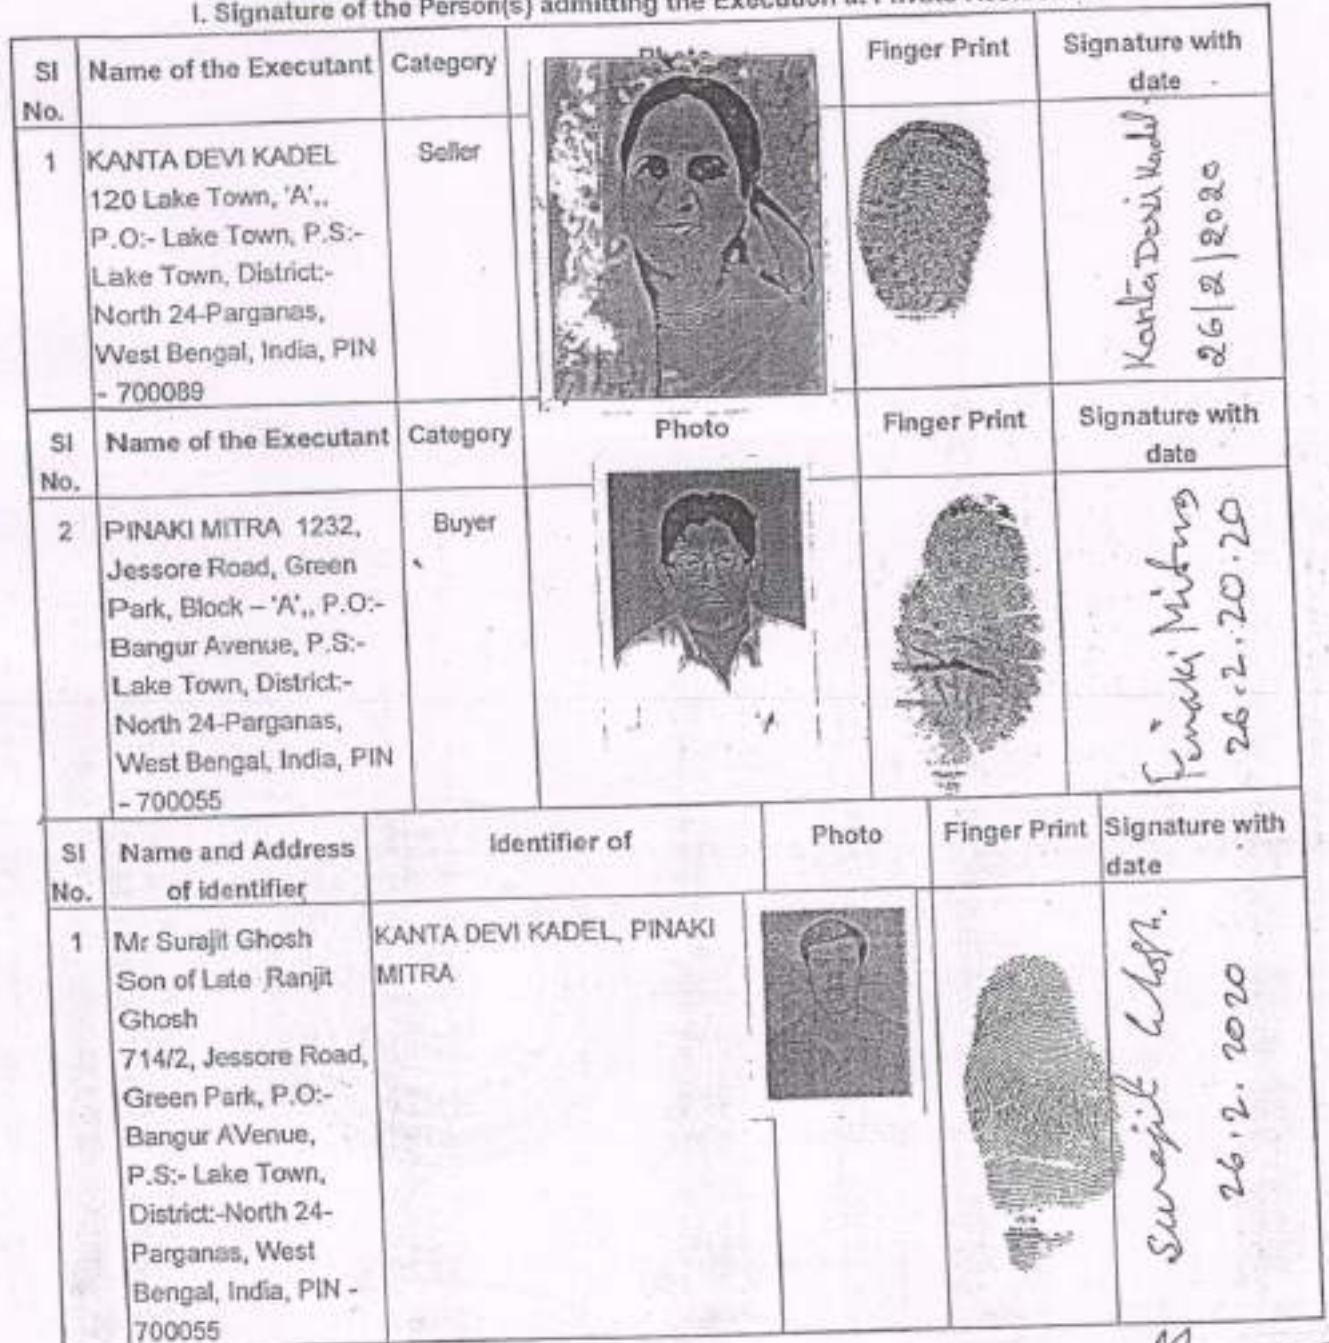 I. Signature of the Person(s) admitting the Execution at Private
Sl No. Name of the Executant Category Photo Finger Print Signature with date
1 KANTA DEVI KADEL Seller
120 Lake Town, 'A',,
P.O:- Lake Town, P.S:-
Lake Town, District:-
North 24-Parganas,
West Bengal, India, PIN
- 700089
Kanta Devi Kadel
26/2/2020
Sl No. Name of the Executant Category Photo Finger Print Signature with date
2 PINAKI MITRA 1232, Buyer
Jessore Road, Green
Park, Block – 'A',, P.O:-
Bangur Avenue, P.S:-
Lake Town, District:-
North 24-Parganas,
West Bengal, India, PIN
- 700055
Pinaki Mitra
26.2.20.20
Sl No. Name and Address of identifier Identifier of Photo Finger Print Signature with date
1 Mr Surajit Ghosh KANTA DEVI KADEL, PINAKI
Son of Late Ranjit MITRA
Ghosh
714/2, Jessore Road,
Green Park, P.O:-
Bangur AVenue,
P.S:- Lake Town,
District:-North 24-
Parganas, West
Bengal, India, PIN -
700055
Surajit Ghosh.
26.2.2020